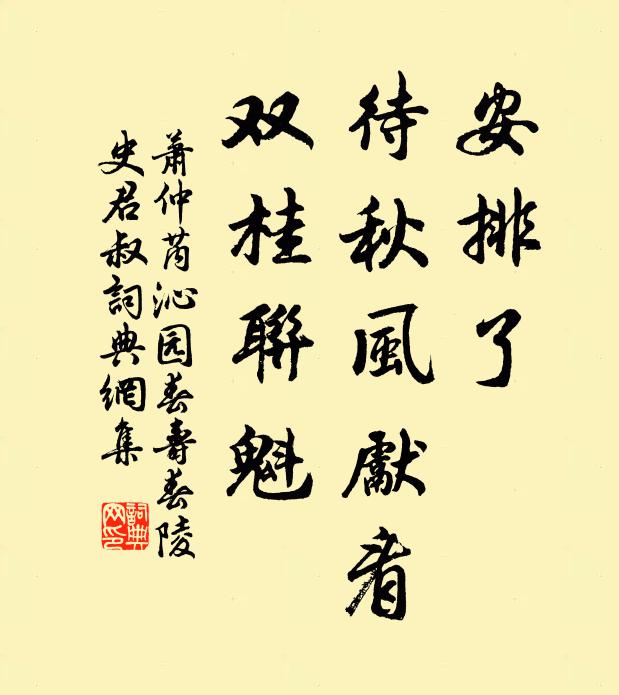 安排了
待秋風獻看
双桂聯魁
蕭仲芮沁园春壽春陵
史君叔詞典網集
詞典
网印